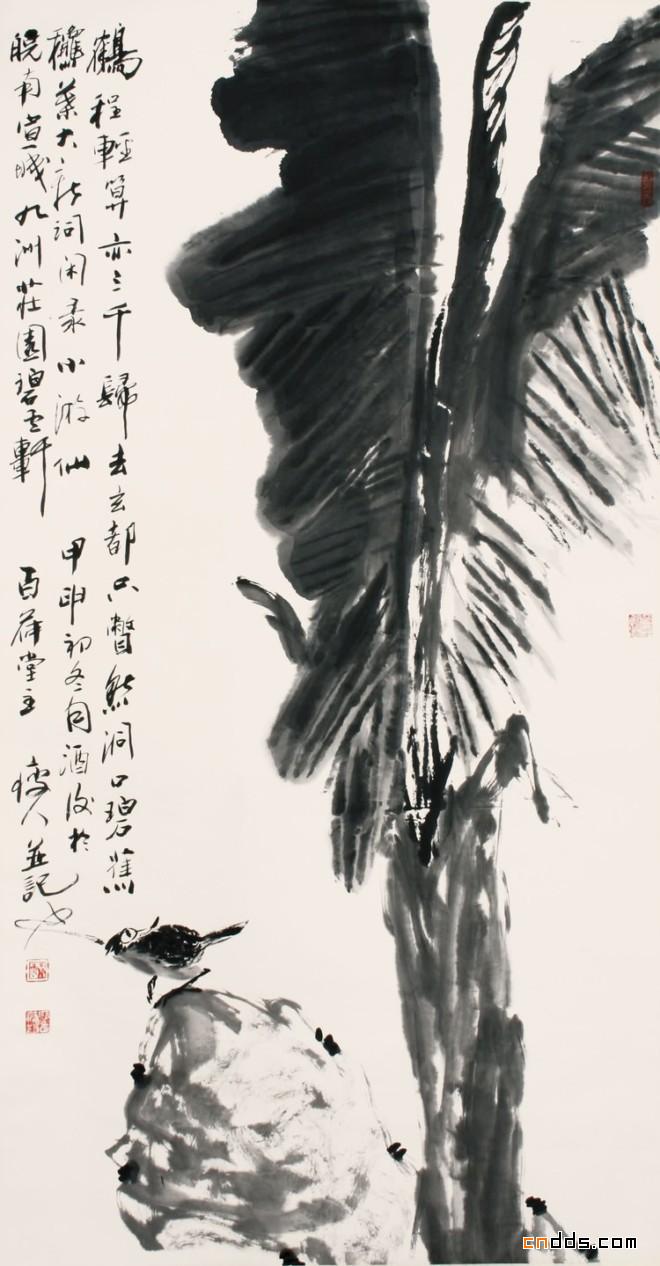 鶴程輕算亦三千歸去玄都只瞥然洞口碧蕉
葉大新詞闲录小游仙 甲申初冬酒後於
皖南宣城九洲莊園碧雲軒 百荷堂主 瘦人並記
cndds.com